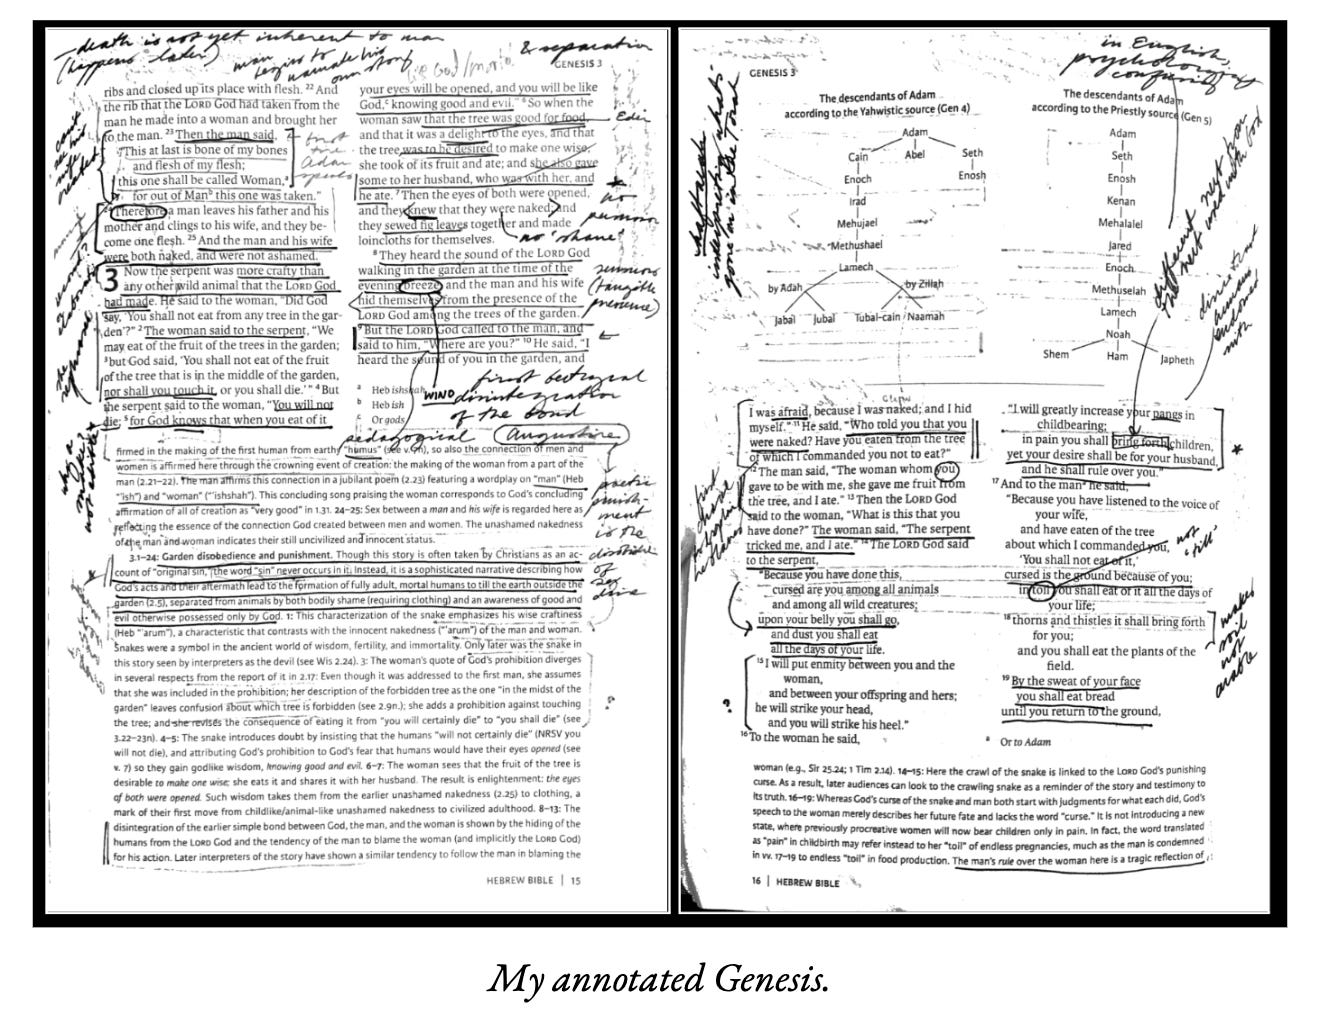 death is not yet inherent to man
(happens later)
man begins to narrate his own story
& separation
GENESIS 3
ribs and closed up its place with flesh. 22 And
the rib that the LORD God had taken from the
man he made into a woman and brought her
to the man. 23 Then the man said,
"This at last is bone of my bones
and flesh of my flesh;
this one shall be called Woman,a
for out of Manb this one was taken."
24 Therefore a man leaves his father and his
mother and clings to his wife, and they be-
come one flesh. 25 And the man and his wife
were both naked, and were not ashamed.
3 Now the serpent was more crafty than
any other wild animal that the LORD God
had made. He said to the woman, "Did God
say, 'You shall not eat from any tree in the gar-
den'?" 2 The woman said to the serpent, "We
may eat of the fruit of the trees in the garden;
3 but God said, 'You shall not eat of the fruit
of the tree that is in the middle of the garden,
nor shall you touch it, or you shall die.'" 4 But
the serpent said to the woman, "You will not
die; 5 for God knows that when you eat of it
first
time
Adam
speaks
your eyes will be opened, and you will be like
God,c knowing good and evil." 6 So when the
woman saw that the tree was good for food,
and that it was a delight to the eyes, and that
the tree was to be desired to make one wise,
she took of its fruit and ate; and she also gave
some to her husband, who was with her, and
he ate. 7 Then the eyes of both were opened,
and they knew that they were naked; and
they sewed fig leaves together and made
loincloths for themselves.
8 They heard the sound of the LORD God
walking in the garden at the time of the
evening breeze, and the man and his wife
hid themselves from the presence of the
LORD God among the trees of the garden.
9 But the LORD God called to the man, and
said to him, "Where are you?" 10 He said, "I
heard the sound of you in the garden, and
Eden
no "shame"
(tangible
presence)
a Heb ishshah
b Heb ish
c Or gods
WIND
first betrayal
disintegration
of the bond
pedagogical
Augustine
firmed in the making of the first human from earthy "humus" (see v. 7n), so also the connection of men and
women is affirmed here through the crowning event of creation: the making of the woman from a part of the
man (2.21–22). The man affirms this connection in a jubilant poem (2.23) featuring a wordplay on "man" (Heb
"ish") and "woman" ("ishshah"). This concluding song praising the woman corresponds to God's concluding
affirmation of all of creation as "very good" in 1.31. 24–25: Sex between a man and his wife is regarded here as
reflecting the essence of the connection God created between men and women. The unashamed nakedness
of the man and woman indicates their still uncivilized and innocent status.
3.1–24: Garden disobedience and punishment. Though this story is often taken by Christians as an ac-
count of "original sin," the word "sin" never occurs in it. Instead, it is a sophisticated narrative describing how
God's acts and their aftermath lead to the formation of fully adult, mortal humans to till the earth outside the
garden (2.5), separated from animals by both bodily shame (requiring clothing) and an awareness of good and
evil otherwise possessed only by God. 1: This characterization of the snake emphasizes his wise craftiness
(Heb "'arum"), a characteristic that contrasts with the innocent nakedness ("'arum") of the man and woman.
Snakes were a symbol in the ancient world of wisdom, fertility, and immortality. Only later was the snake in
this story seen by interpreters as the devil (see Wis 2.24). 3: The woman's quote of God's prohibition diverges
in several respects from the report of it in 2.17: Even though it was addressed to the first man, she assumes
that she was included in the prohibition; her description of the forbidden tree as the one "in the midst of the
garden" leaves confusion about which tree is forbidden (see 2.9n.); she adds a prohibition against touching
the tree; and she revises the consequence of eating it from "you will certainly die" to "you shall die" (see
3.22–23n). 4–5: The snake introduces doubt by insisting that the humans "will not certainly die" (NRSV you
will not die), and attributing God's prohibition to God's fear that humans would have their eyes opened (see
v. 7) so they gain godlike wisdom, knowing good and evil. 6–7: The woman sees that the fruit of the tree is
desirable to make one wise; she eats it and shares it with her husband. The result is enlightenment: the eyes
of both were opened. Such wisdom takes them from the earlier unashamed nakedness (2.25) to clothing, a
mark of their first move from childlike/animal-like unashamed nakedness to civilized adulthood. 8–13: The
disintegration of the earlier simple bond between God, the man, and the woman is shown by the hiding of the
humans from the LORD God and the tendency of the man to blame the woman (and implicitly the LORD God)
for his action. Later interpreters of the story have shown a similar tendency to follow the man in blaming the
poetic
punish-
ment
is the
?
HEBREW BIBLE | 15
GENESIS 3
in English,
The descendants of Adam
according to the Yahwistic source (Gen 4)
Adam
Cain Abel Seth
Enoch Enosh
Irad
Mehujael
Methushael
Lamech
by Adah by Zillah
Jabal Jubal Tubal-cain Naamah
The descendants of Adam
according to the Priestly source (Gen 5)
Adam
Seth
Enosh
Kenan
Mehalalel
Jared
Enoch
Methuselah
Lamech
Noah
Shem Ham Japheth
I was afraid, because I was naked; and I hid
myself." 11 He said, "Who told you that you
were naked? Have you eaten from the tree
of which I commanded you not to eat?"
12 The man said, "The woman whom you
gave to be with me, she gave me fruit from
the tree, and I ate." 13 Then the LORD God
said to the woman, "What is this that you
have done?" The woman said, "The serpent
tricked me, and I ate." 14 The LORD God said
to the serpent,
"Because you have done this,
cursed are you among all animals
and among all wild creatures;
upon your belly you shall go,
and dust you shall eat
all the days of your life.
15 I will put enmity between you and the
woman,
and between your offspring and hers;
he will strike your head,
and you will strike his heel."
16 To the woman he said,
?
"I will greatly increase your pangs in
childbearing;
in pain you shall bring forth children,
yet your desire shall be for your husband,
and he shall rule over you."
17 And to the mana he said,
"Because you have listened to the voice of
your wife,
and have eaten of the tree
about which I commanded you,
'You shall not eat of it,'
cursed is the ground because of you;
in toil you shall eat of it all the days of
your life;
18 thorns and thistles it shall bring forth
for you;
and you shall eat the plants of the
field.
19 By the sweat of your face
you shall eat bread
until you return to the ground,
not
'till'
makes
soil
not
arable
a Or to Adam
woman (e.g., Sir 25.24; 1 Tim 2.14). 14–15: Here the crawl of the snake is linked to the LORD God's punishing
curse. As a result, later audiences can look to the crawling snake as a reminder of the story and testimony to
its truth. 16–19: Whereas God's curse of the snake and man both start with judgments for what each did, God's
speech to the woman merely describes her future fate and lacks the word "curse." It is not introducing a new
state, where previously procreative women will now bear children only in pain. In fact, the word translated
as "pain" in childbirth may refer instead to her "toil" of endless pregnancies, much as the man is condemned
in vv. 17–19 to endless "toil" in food production. The man's rule over the woman here is a tragic reflection of
16 | HEBREW BIBLE
My annotated Genesis.